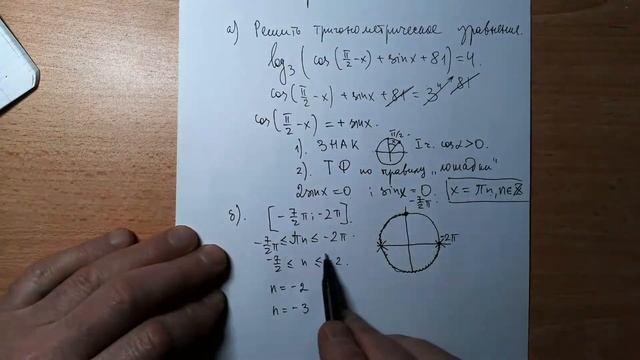 а) Решить тригонометрическое уравнение.
log₃ (cos(π/2 - x) + sinx + 81) = 4.
cos(π/2 - x) + sinx + 81 = 3⁴ 81
cos(π/2 - x) = + sinx.
1). ЗНАК π/2 I ч. cosα > 0.
2). ТФ по правилу „лошадки"
2sinx = 0 ; sinx = 0. x = πn, n∈Z
б). [-7/2π; -2π]
-7/2π ≤ πn ≤ -2π.
-7/2 ≤ n ≤ 2.
n = -2
n = -3
-7/2π
-2π